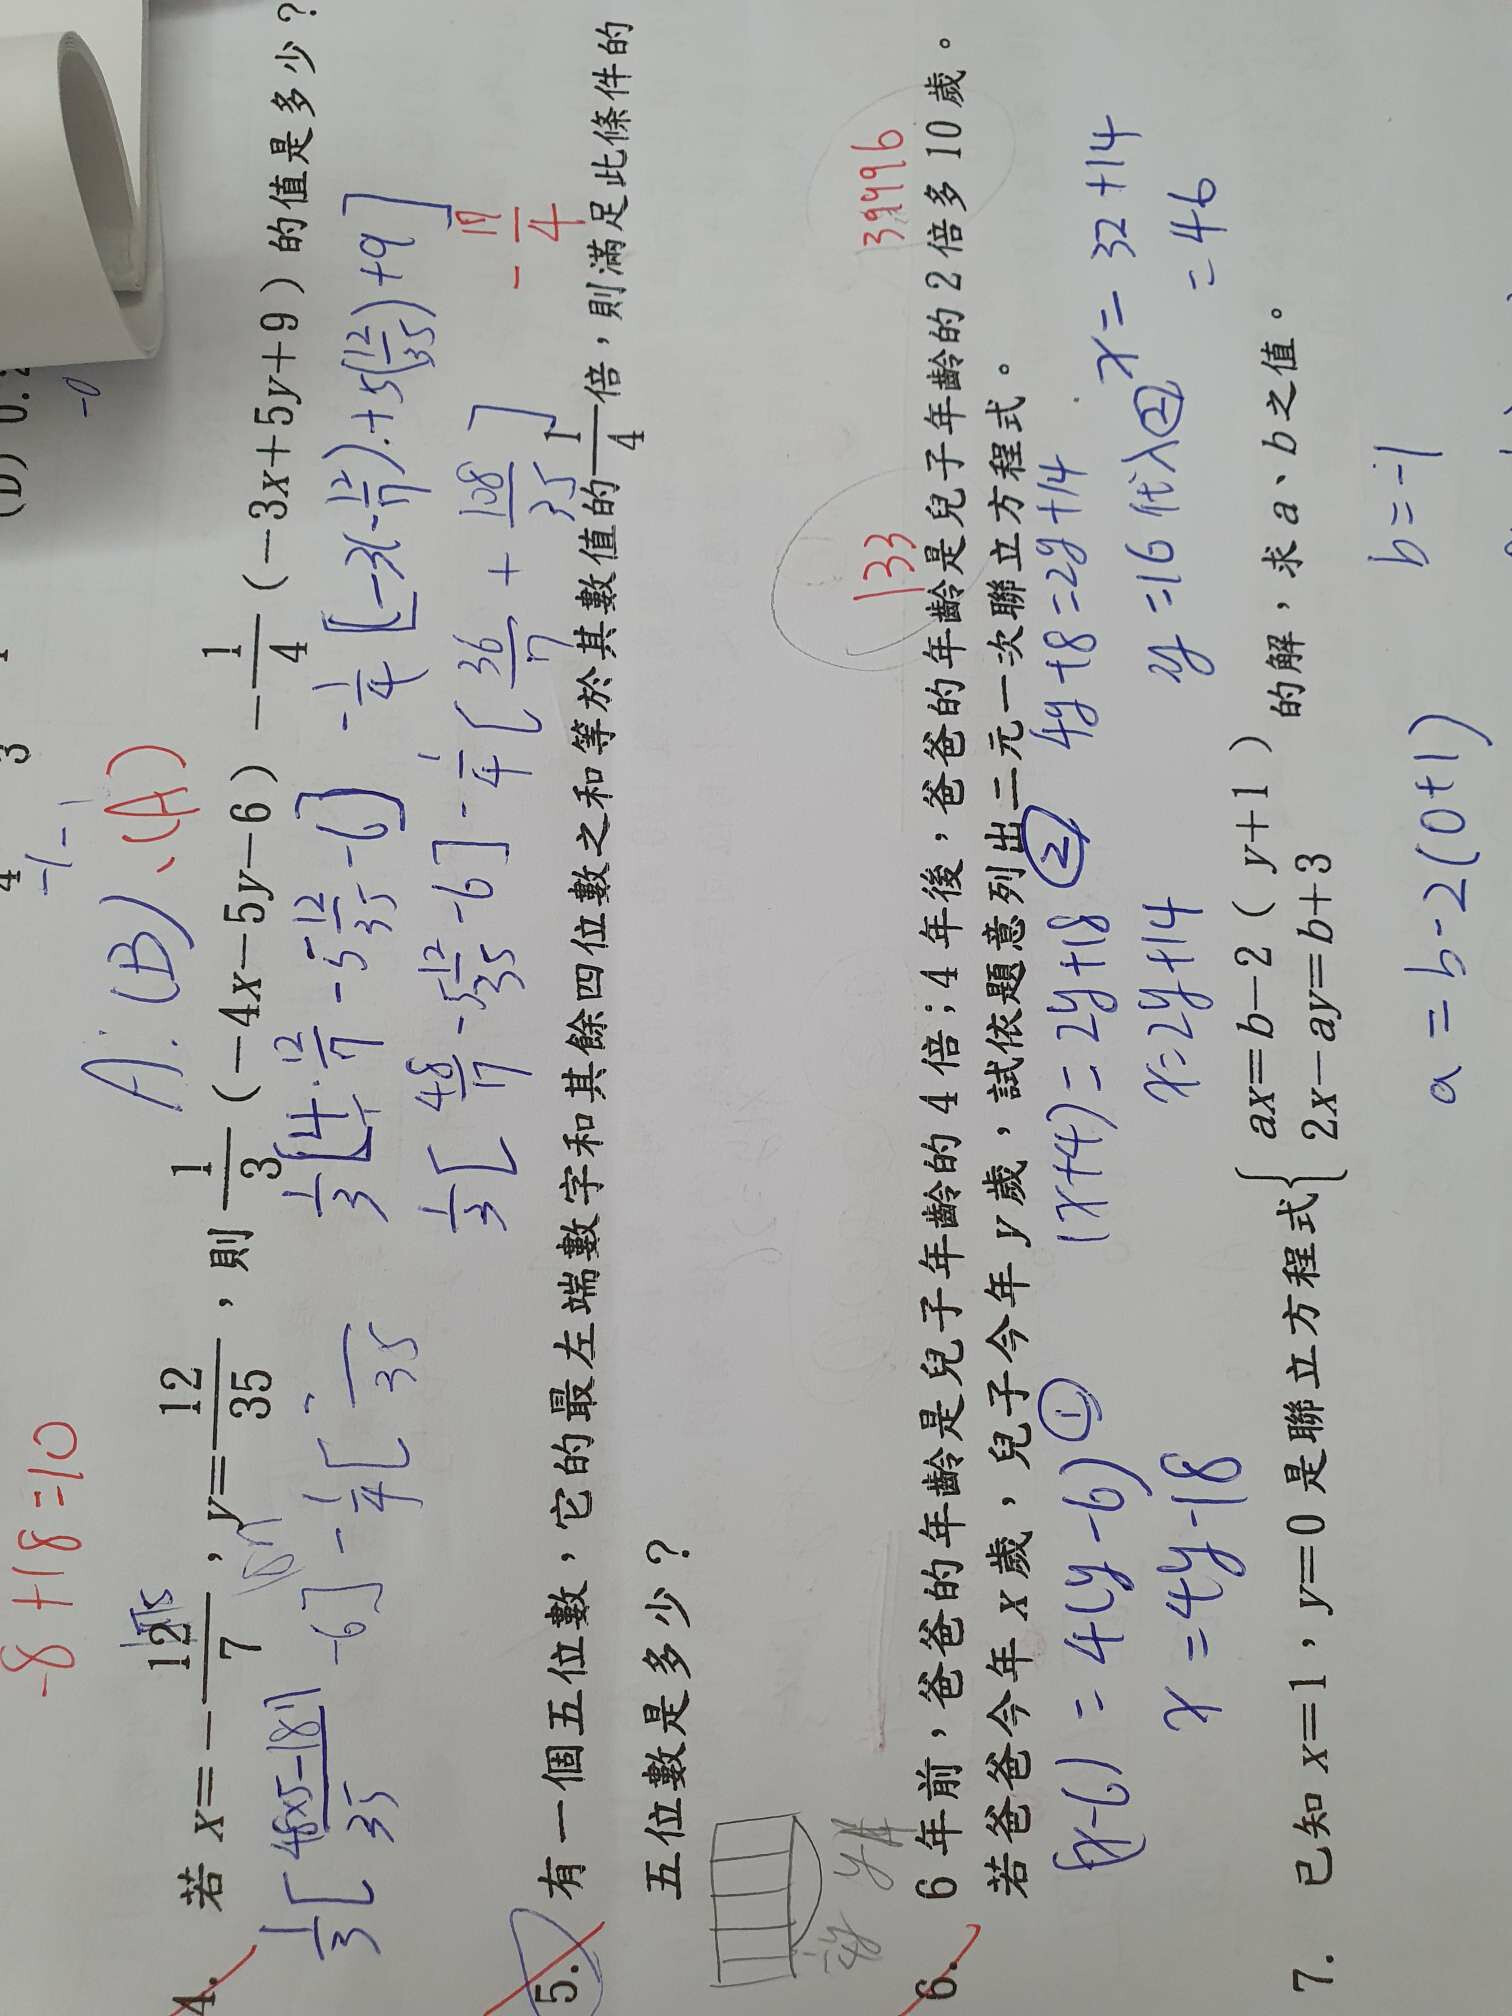 (D) 0.
-8+18=10
A:(B)、(A)
4. 若 x=-12/7，y=12/35，則 1/3(-4x-5y-6)-1/4(-3x+5y+9)的值是多少？
1/3[4·12/7-5 12/35-6] -1/4[-3(-12/7)+5(12/35)+9]
1/3[48/7-5 12/35-6]-1/4[36/7+108/35]
-19/4
1/3[48×5-18/35 -6]-1/4[ /35
5. 有一個五位數，它的最左端數字和其餘四位數之和等於其數值的1/4倍，則滿足此條件的
五位數是多少？
133 39996
6. 6年前，爸爸的年齡是兒子年齡的4倍；4年後，爸爸的年齡是兒子年齡的2倍多10歲。
若爸爸今年x歲，兒子今年y歲，試依題意列出二元一次聯立方程式。
(x-6)=4(y-6)① (x+4)=2y+18② 4y+8=2y+14 x=32+14
x=4y-18 x=2y+14 y=16代入② =46
7. 已知x=1，y=0是聯立方程式{ax=b-2(y+1)
2x-ay=b+3 的解，求a、b之值。
a=b-2(0+1) b=-1